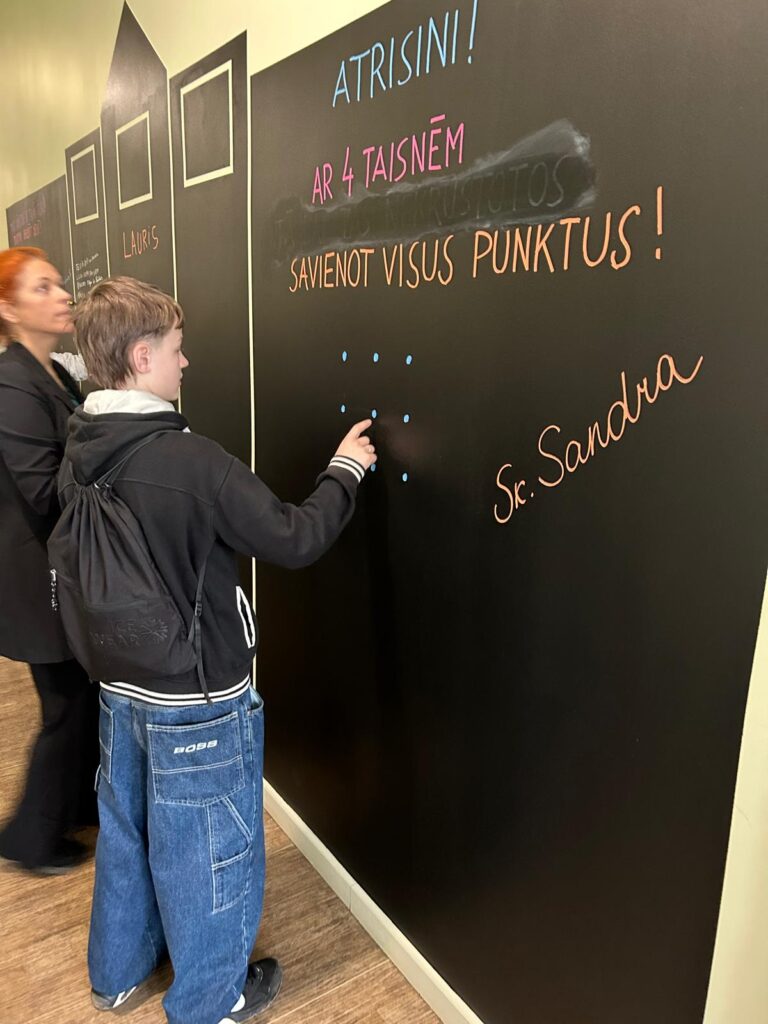 ATRISINI!
AR 4 TAISNĒM
SAVIENOT VISUS PUNKTUS!
Sk. Sandra
LAURIS
BOSS